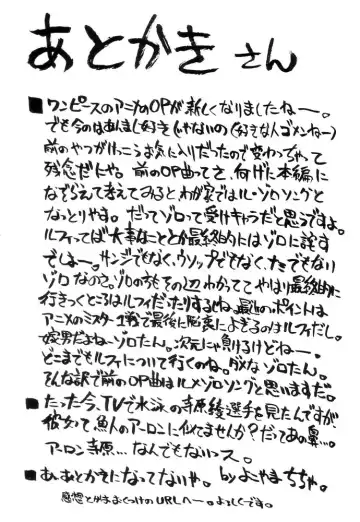 あとがき さん
■ワンピースのアニメのOPが新しくなりましたねー。
でも今のはあんまし好きじゃないの(好きな人ゴメンねー)
前のやつがけっこうお気に入りだったので変わっちゃって
残念だにゃ。前のOP曲ってさ、何げに本編に
なぞらえて考えてみるとわが家ではル・ゾロソングと
なっとりやす。だってゾロって受けキャラだと思うですよ。
ルフィってば大事なこととか最終的にはゾロに託す
でしょー。サンジでもなく、ウソップでもなく、たでもない
ゾロなのさ。ゾロのうもその辺わかってて やはり最終的に
行きつくところはルフィだったりするしね。最近のポイントは
アニメのミスター1戦で最後に脳裏によぎるのはルフィだし。
嫁男だよねーゾロたん。次元にゃ負けるけどねー。
どこまでもルフィについて行くのね。ダメなゾロたん。
そんな訳で前のOP曲はル×ゾロソングと思いますだ。
■たった今、TVで水泳の寺原綾選手を見たんですが
彼女って魚人のアーロンに似てませんか?だってあの鼻…。
アーロン寺原…なんでもないっス。
■あ、あとがきになってないや。 by よこやまちちゃ。
感想とかはおくづけのURLへー。よろしくです。